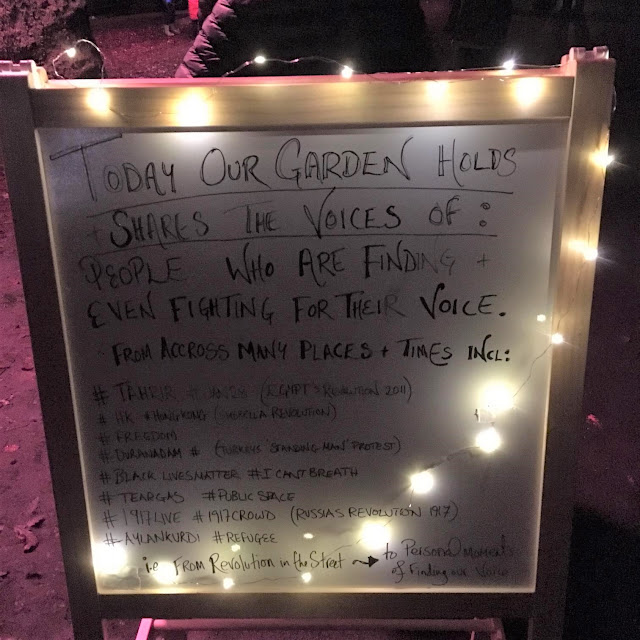 TODAY OUR GARDEN HOLDS
+ SHARES THE VOICES OF :
PEOPLE WHO ARE FINDING +
EVEN FIGHTING FOR THEIR VOICE.
FROM ACCROSS MANY PLACES + TIMES INCL:
# TAHRIR # (EGYPT'S REVOLUTION 2011)
# HK # HONG KONG (UMBRELLA REVOLUTION)
# FREEDOM
# DURANADAM # (TURKEYS 'STANDING MAN' PROTEST)
# BLACK LIVES MATTER # I CANT BREATH
# TEARGAS # PUBLIC SPACE
# 1917LIVE # 1917CROWD (RUSSIAS REVOLUTION 1917)
# AYLANKURDI # REFUGEE
i.e FROM REVOLUTION in the Street → to PERSONAL MOMENTS
of Finding our Voice